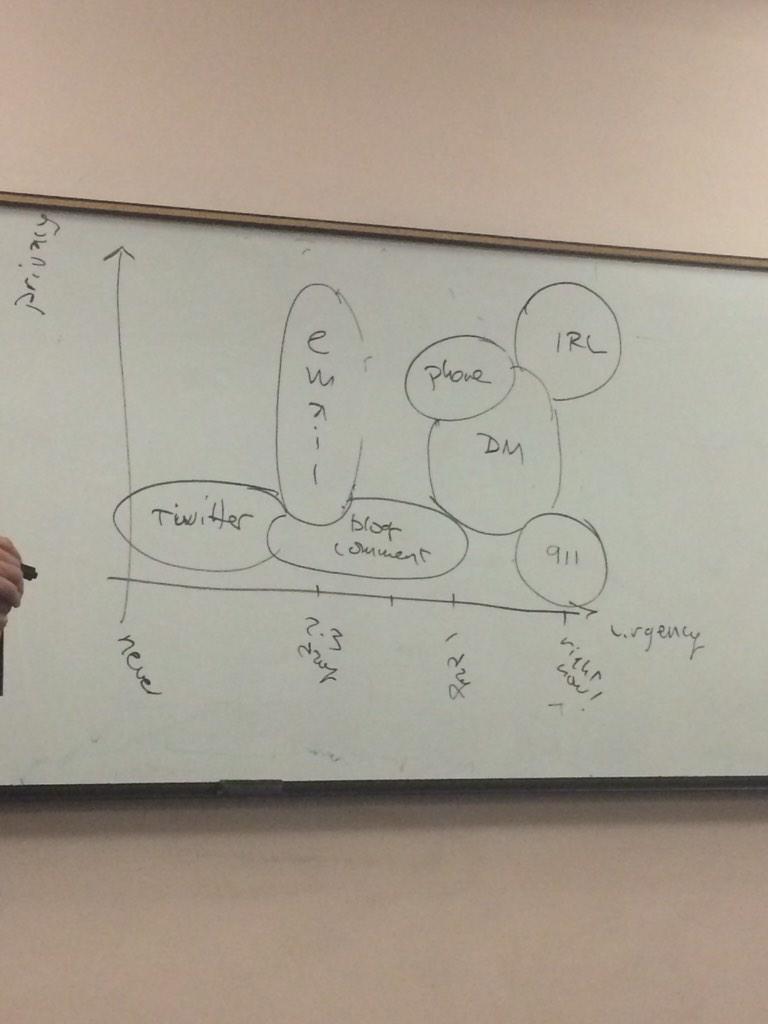 privacy
IRL
phone
e
m
a
i
l
DM
Twitter
blog
comment
911
urgency
never
2-3
days
1
day
right
now!